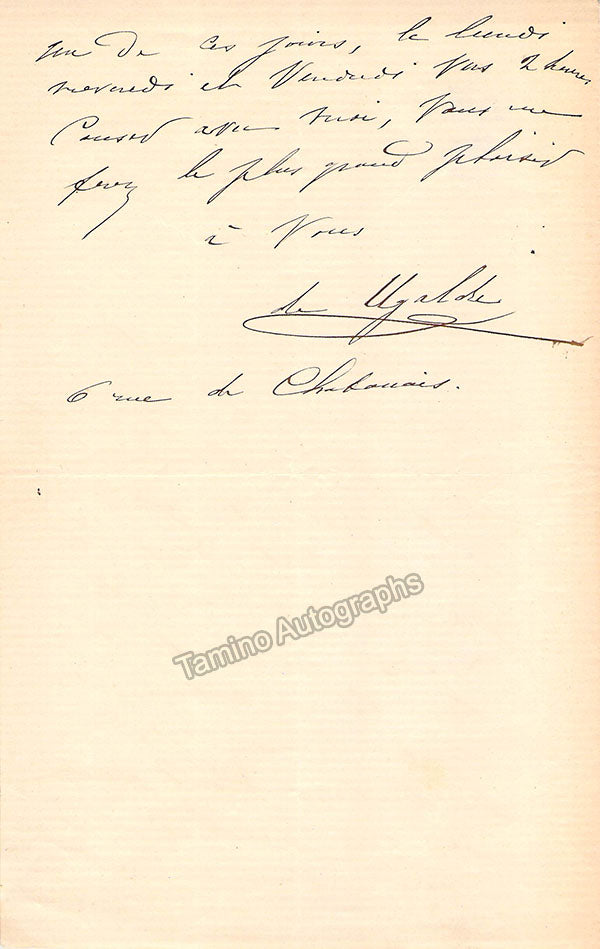 un de ces jours, le lundi
mercredi et Vendredi vers 2 heures
Causer avec moi, Vous me
ferez le plus grand plaisir
à Vous
de Ugalde
6 rue de Chabanais.
Tamino Autographs